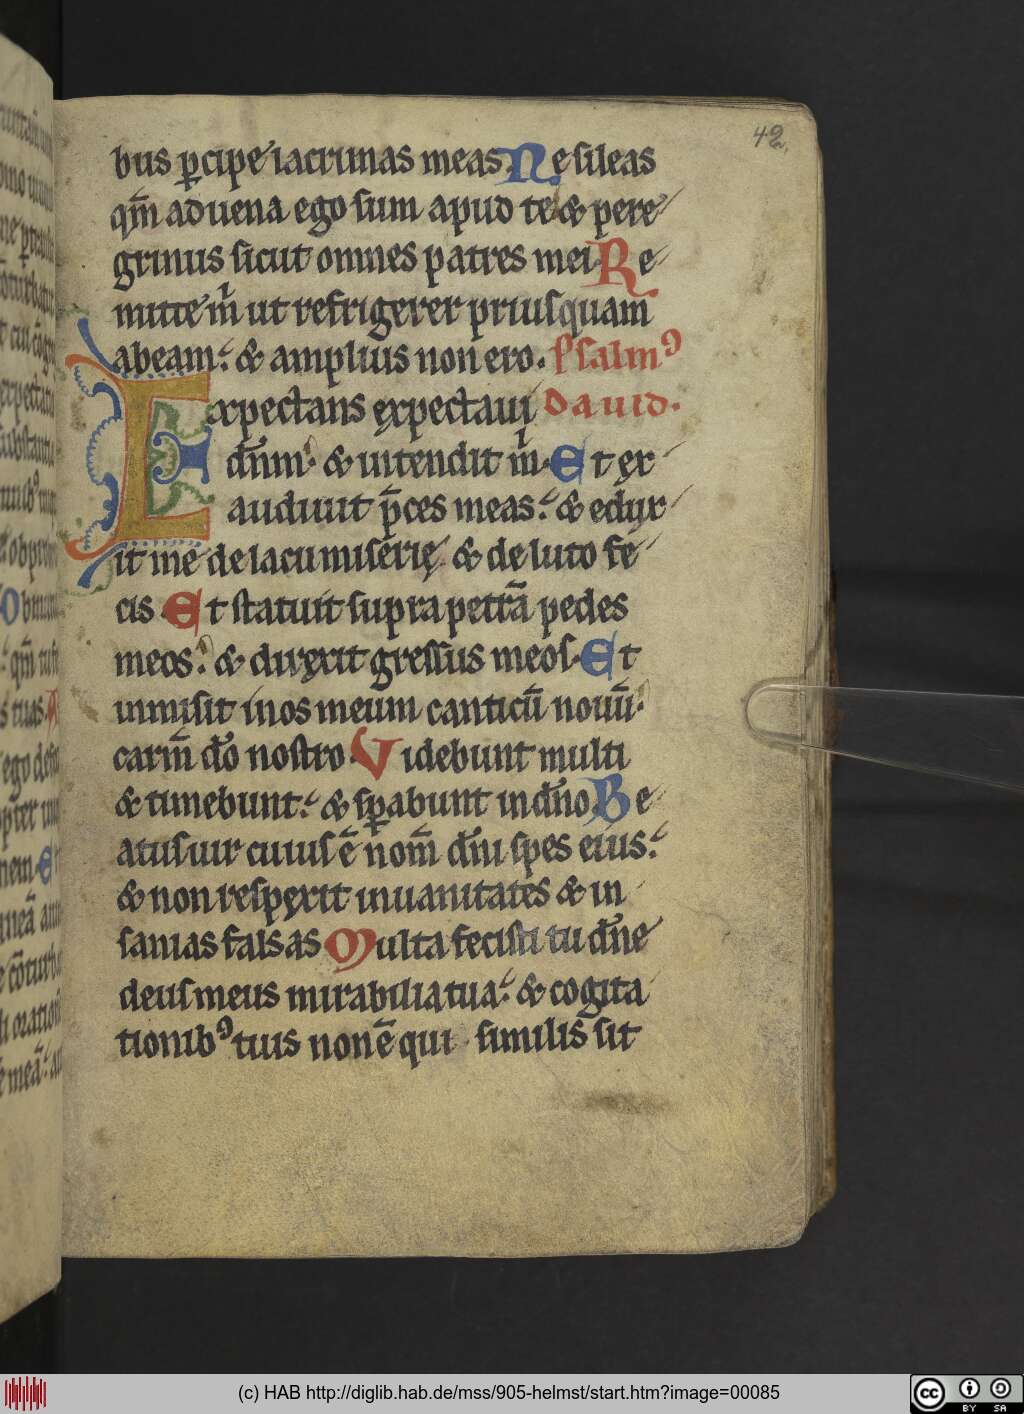 42
bus ꝑcipe lacrimas meas. Ne sileas
qm̄ aduena ego sum apud te & pere
grinus sicut omnes patres mei. Re
mitte m̄ ut refrigerer priuſquam
abeam: & amplius non ero. pſalmꝰ
Expectans ęxpectaui dauid.
dn̄m: & intendit m̄. Et ęx
audiuit p̄ces meas: & edux
it me de lacu miserię & de luto fe
cis Et statuit supra petrā pedes
meos: & diręxit gressus meoſ. Et
inmisit in os meum canticū nouū.
carm̄ do̅ nostro. Videbunt multi
& timebunt: & sꝑabunt in dn̄o Be
atuſ uir cuiuſ ē nom̄ dn̄i spes eius:
& non respęxit in uanitates & in
sanias falsas Multa fecisti tu dn̄e
deuſ meus mirabilia tua: & cogita
tionibꝰ tuis non ē qui similis sit
(c) HAB http://diglib.hab.de/mss/905-helmst/start.htm?image=00085
cc BY SA